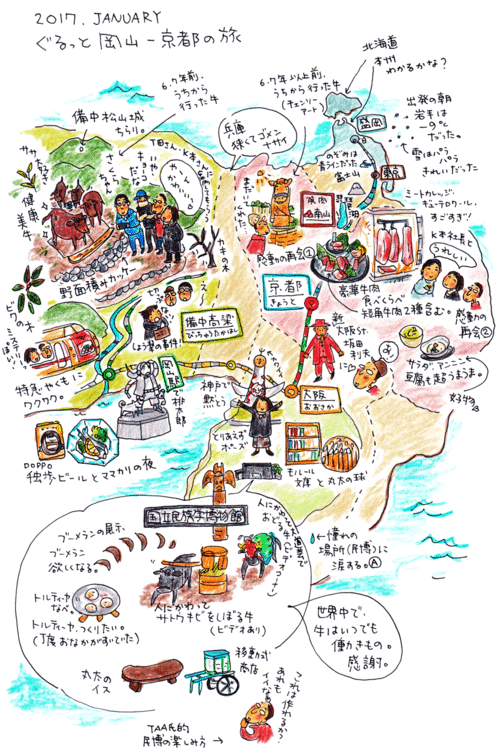 2017. JANUARY
ぐるっと 岡山 − 京都の旅
北海道
本州
わかるかな?
6.7年前、
うちから
行った牛
6.7年以上前、
うちから行った牛
(チェンソー
アート)
備中松山城
ちらり。
兵庫
狭くてゴメン
ナサイ
盛岡
出発の朝
岩手は
−9℃
だった。
雪はパラパラ
きれいだった
のぞみは
富士山
東京
健康
美牛
野面積みカッケー
カキの木
焼肉
南山
琵琶湖
感動の再会①
ミートカッレジ・
キューテロワール・
すごすぎ!!
K本社長と
うれしい
豪華牛肉
食べくらべ
短角牛肉2種含む。
感動の
再会②
京都
きょうと
備中高梁
びっちゅうたかはし
しょう髪の事件!
ビワの木
特急やくもに
ワクワク。
岡山駅
で桃太郎
神戸で
黙とう
新
大阪st.
坂田
利夫
に
大阪
おおさか
サラダ、アンニン
豆腐も超うまうま。
好物
DOPPO
独歩ビールとママカリの夜
とりあえず
ポーズ
モルール
文庫 と丸太の球
国立民族学博物館
ブーメランの展示、
ブーメラン
欲しくなる。
人にかわって
おどる牛
(ビデオコーナー)
←憧れの
場所(民博)に
涙する。Ⓐ
人にかわって
サトウキビをしぼる牛
(ビデオあり)
トルティーヤ
なべ。
トルティーヤ、つくりたい。
(丁度おなかがすいてた)
世界中で、
牛はいつでも
働きもの。
感謝。
丸太の
イス
移動式
商店
これは作れるか?
あれも
イイなあ
TAA氏的
民博の楽しみ方→